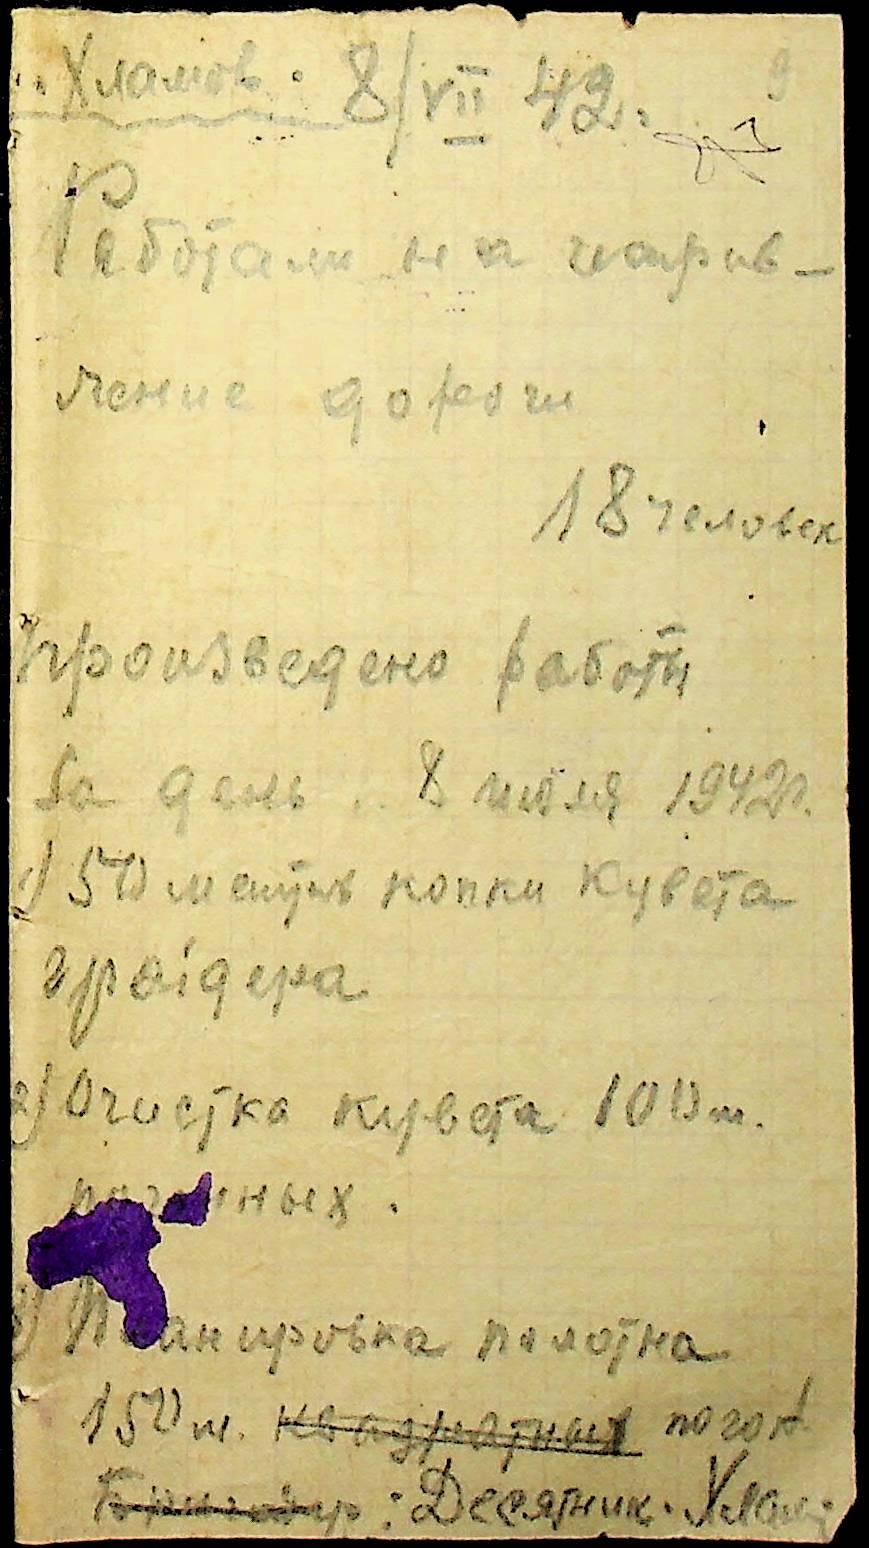 Хламов. 8/VII 42. 9
Работали на исправ-
ление дороги
18 человек
Произведено работы
за день 8 июля 1942г.
1) 50 метров копки кувета
грейдера
2) Очистка кувета 100 м.
погонных.
3) Планировка полотна
150 м. квадратных погон.
Бригадир: Десятник. Хлам